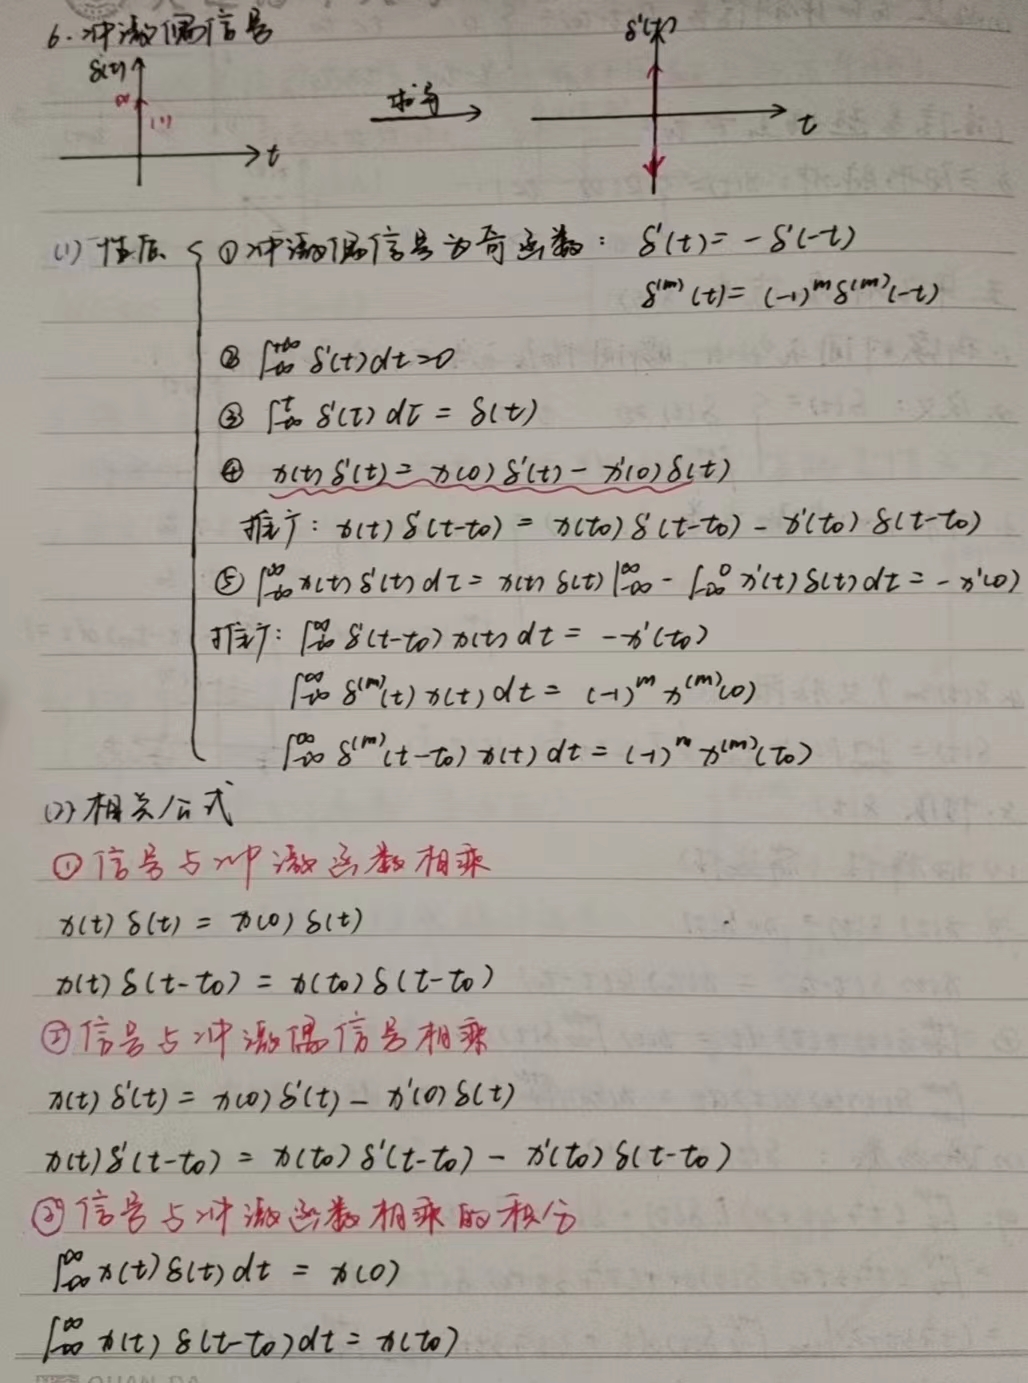 6. 冲激偶信号
δ(t)
(1)
t
求导
δ'(t)
t
(1) 性质 { ① 冲激偶信号为奇函数: δ'(t) = -δ'(-t)
δ^(m)(t) = (-1)^m δ^(m)(-t)
② ∫_{-∞}^{+∞} δ'(t)dt=0
③ ∫_{-∞}^{t} δ'(τ) dτ = δ(t)
④ x(t) δ'(t) = x(0) δ'(t) - x'(0) δ(t)
推广: x(t) δ'(t-t₀) = x(t₀) δ'(t-t₀) - x'(t₀) δ(t-t₀)
⑤ ∫_{-∞}^{∞} x(t) δ'(t) dτ = x(t) δ(t) |_{-∞}^{∞} - ∫_{-∞}^{0} x'(t) δ(t) dt = -x'(0)
推广: ∫_{-∞}^{∞} δ'(t-t₀) x(t) dt = -x'(t₀)
∫_{-∞}^{∞} δ^(m)(t) x(t) dt = (-1)^m x^(m)(0)
∫_{-∞}^{∞} δ^(m)(t-t₀) x(t) dt = (-1)^m x^(m)(t₀)
(2) 相关公式
① 信号与冲激函数相乘
x(t) δ(t) = x(0) δ(t)
x(t) δ(t-t₀) = x(t₀) δ(t-t₀)
② 信号与冲激偶信号相乘
x(t) δ'(t) = x(0) δ'(t) - x'(0) δ(t)
x(t) δ'(t-t₀) = x(t₀) δ'(t-t₀) - x'(t₀) δ(t-t₀)
③ 信号与冲激函数相乘的积分
∫_{-∞}^{∞} x(t) δ(t) dt = x(0)
∫_{-∞}^{∞} x(t) δ(t-t₀) dt = x(t₀)